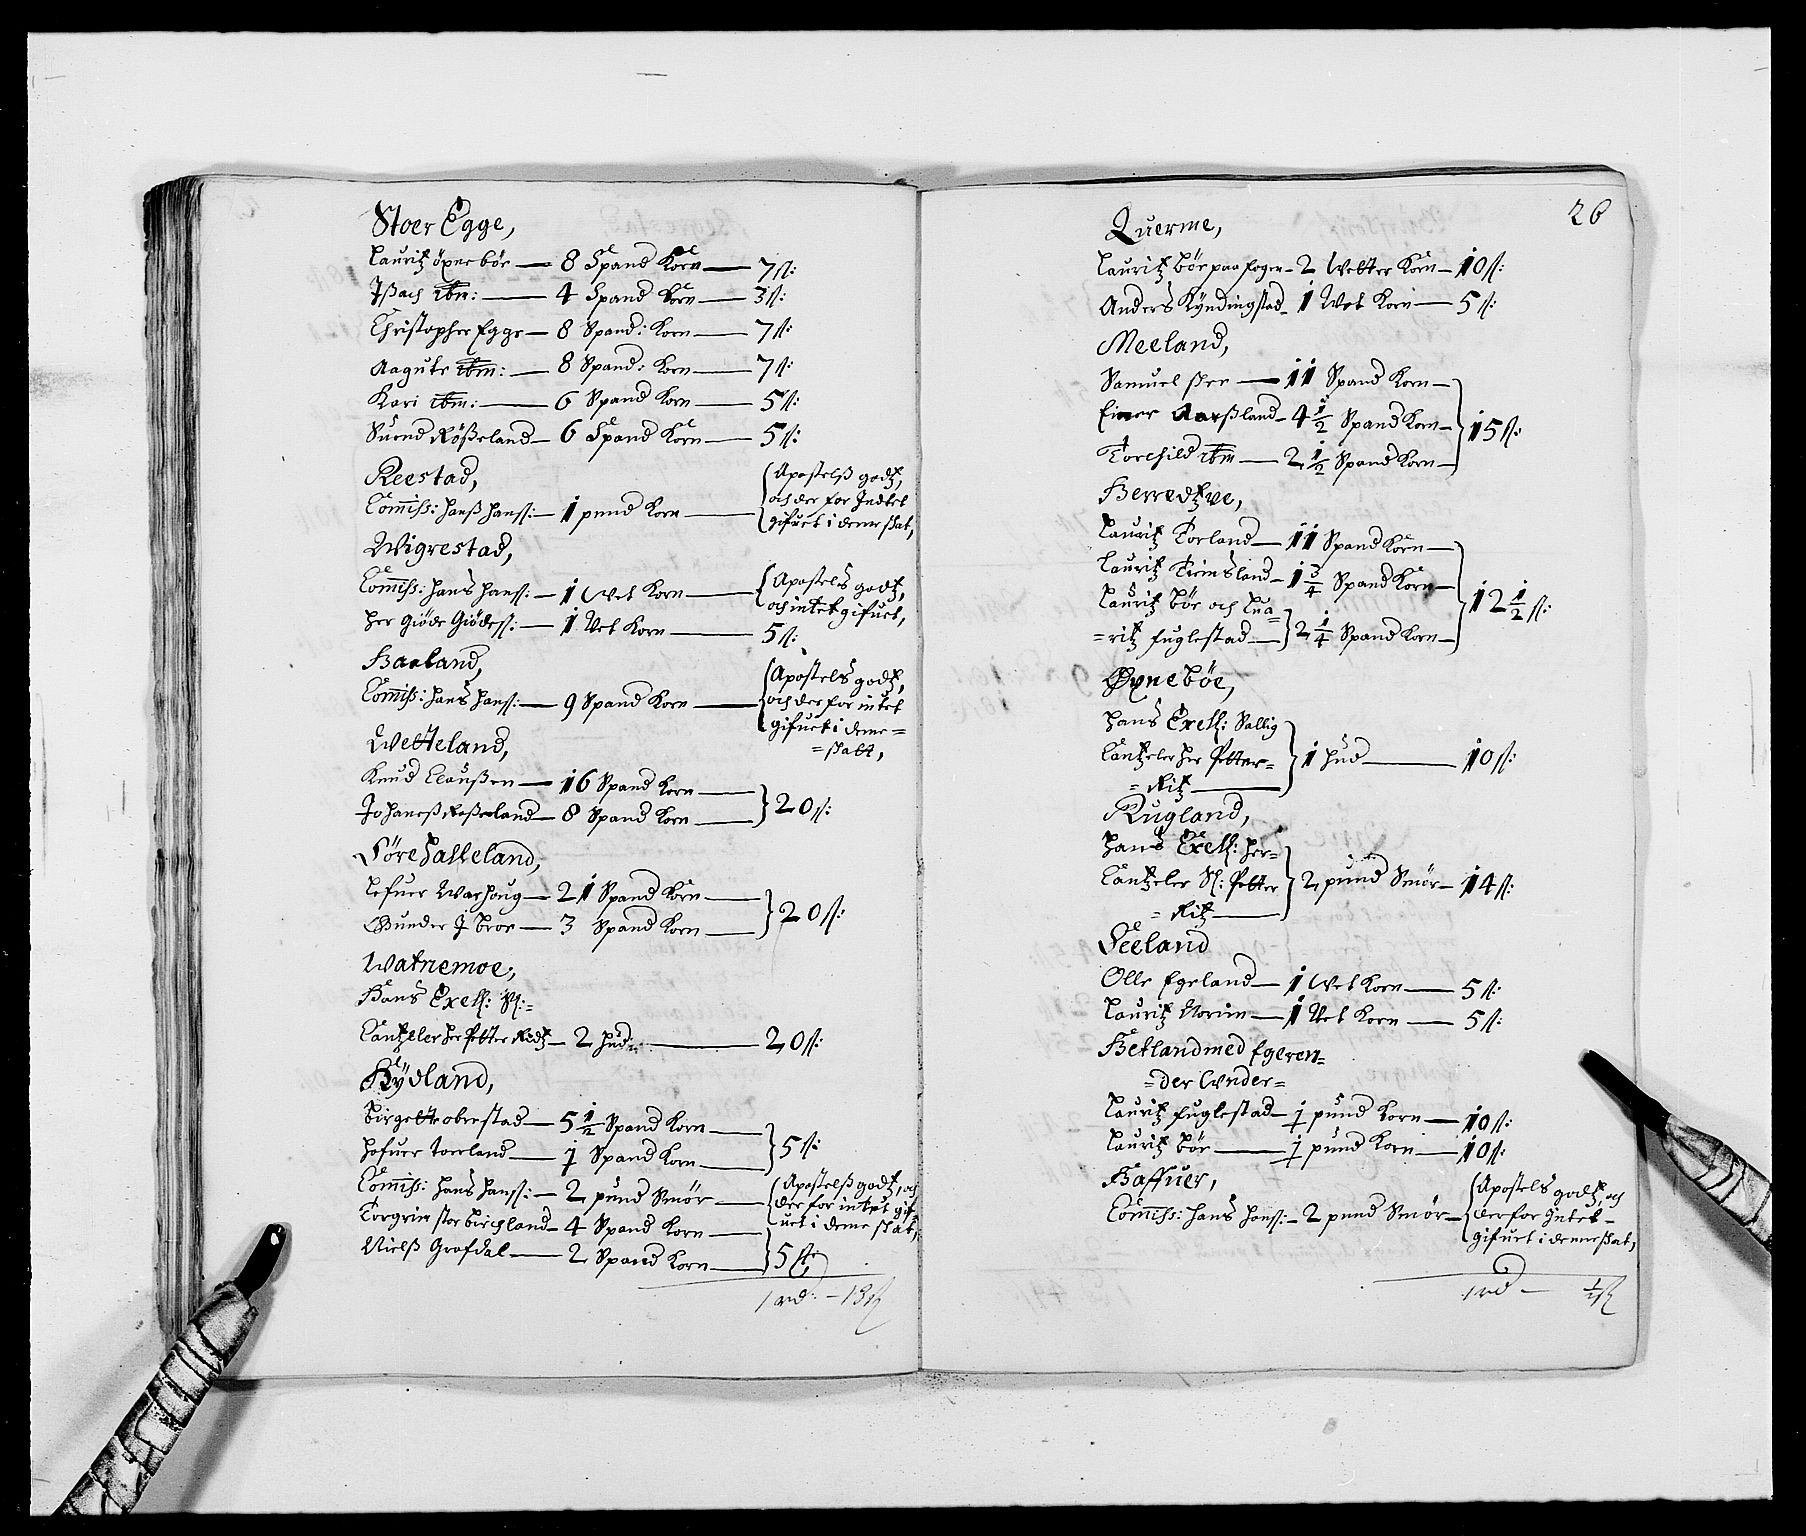 Stoer Egge,
Lauritz öxnebör — 8 Spand Korn — 7 ß:
Ißach ibm: — 4 Spand Korn — 3 ß:
Christopher Egge — 8 Spand: Korn — 7 ß:
Aagute ibm: — 8 Spand: Korn — 7 ß:
Kari ibm: — 6 Spand Korn — 5 ß:
Suend Rößeland — 6 Spand Korn — 5 ß:
Reestad,
Com̄iss: Hanß Hanss: — 1 pund Korn — Apostelß godtz,
och der for Indtet
gifuet i denne skat,
Wigrestad,
Com̄iss: Hans Hanss: — 1 Wet Korn — Apostels godtz,
och intet gifuet,
Her Giöde Giödess: — 1 Vet Korn — 5 ß:
Haaland,
Com̄iss: Hans Hanss: — 9 Spand Korn — Apostels godtz,
och der for intet
gifuet i denne=
=skatt,
Wetteland,
Knud Claußen — 16 Spand Korn
Johanes Roßeland — 8 Spand Korn — 20 ß:
Söre Halleland,
Lefuer Warhoug — 21 Spand Korn
Gunder J bror — 3 Spand Korn — 20 ß:
Watnemoe,
Hans Exell: Sl:=
Cantzeler Her Petter Redtz — 2 hud: — 20 ß:
Kÿdland,
Birgette obrestad — 5 1/2 Spand Korn
Hofuer Torland — 1 Spand Korn — 5 ß:
Com̄iss: Hans Hanss: — 2 pund Smör — Apostelß godtz, och
der for intet gif
uet i denne skat,
Torgrim stor birchland — 4 Spand Korn
Nielß Grofdal — 2 Spand Korn — 5 ß:
1 rd: — 13 ß
26
Querme,
Lauritz Bör paa fogen — 2 Wetter Korn — 10 ß:
Anders Kÿndingstad — 1 Wet Korn — 5 ß:
Meeland,
Samuel skee — 11 Spand Korn —
Einer Aarßland — 4 1/2 Spand Korn — 15 ß:
Torchild ibm — 2 1/2 Spand Korn —
Herredtzve,
Lauritz Torland — 11 Spand Korn —
Lauritz Tiemsland — 1 3/4 Spand Korn — 12 1/2 ß:
Lauritz Bör och Lua=
=ritz fuglestad — 2 1/4 Spand Korn —
Øxneböe,
Hans Exell: Sallig
Cantzeler Her Petter= 1 hud — 10 ß:
=Ritz
Rugland,
Hans Exell: Her=
Cantzeler Sl: Petter 2 pund Smör — 14 ß:
=Ritz
Seeland
Olle Egeland — 1 Wet Korn — 5 ß:
Lauritz Norim — 1 Vet Korn — 5 ß:
Hetland med Egeren=
=der Wnder=
Lauritz fuglestad — 1 pund Korn — 10 ß:
Lauritz Bör — 1 pund Korn — 10 ß:
Haffuer,
Com̄iss: Hans Hanss: — 2 pund Smör — Apostels godtz, och
der for Intet=
gifuet i denne skat,
1 rd — 1/2 ß